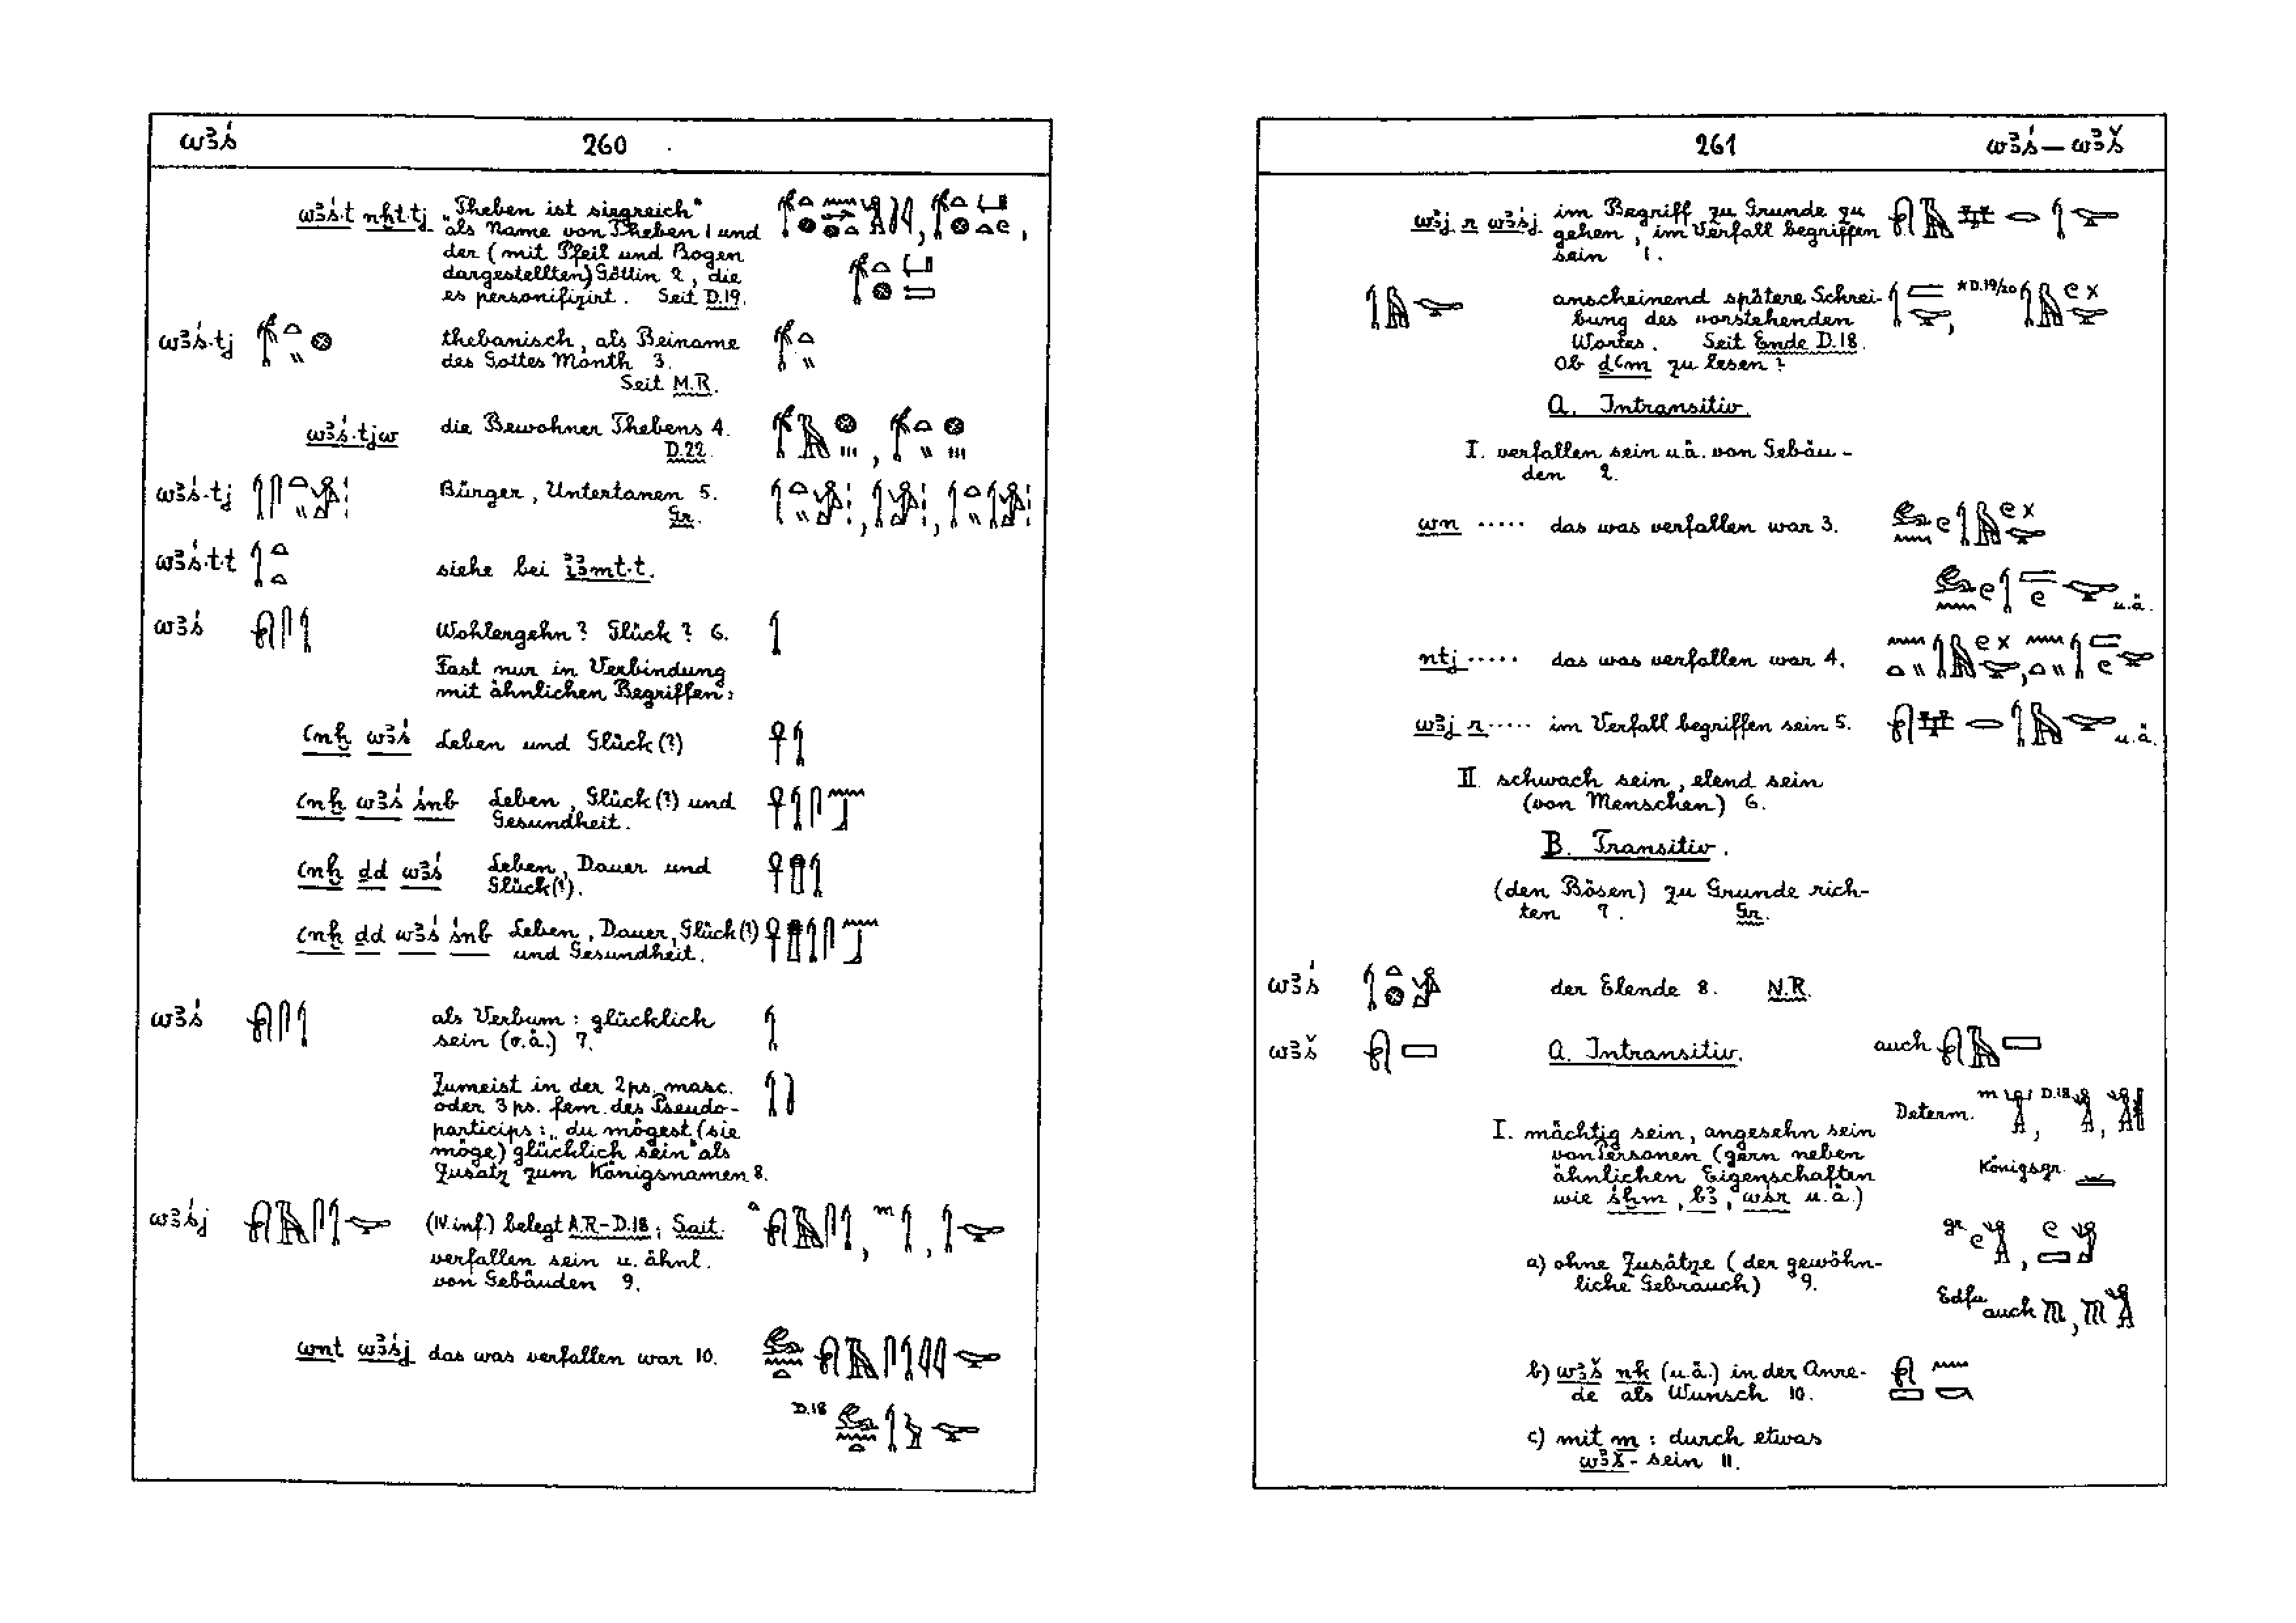 wꜣś
260
wꜣś·t nḫt·tj „Theben ist siegreich"
als Name von Theben 1 und
der (mit Pfeil und Bogen
dargestellten) Göttin 2, die
es personifizirt. Seit D.19.
wꜣś·tj thebanisch, als Beiname
des Gottes Month 3.
Seit M.R.
wꜣś·tjw die Bewohner Thebens 4.
D.22.
wꜣś·tj Bürger, Untertanen 5.
Gr.
wꜣś·t·t siehe bei iꜣmt·t.
wꜣś Wohlergehn? Glück? 6.
Fast nur in Verbindung
mit ähnlichen Begriffen:
ꜥnḫ wꜣś Leben und Glück(?)
ꜥnḫ wꜣś śnb Leben, Glück(?) und
Gesundheit.
ꜥnḫ ḏd wꜣś Leben, Dauer und
Glück(?).
ꜥnḫ ḏd wꜣś śnb Leben, Dauer, Glück(?)
und Gesundheit.
wꜣś als Verbum: glücklich
sein (o.ä.) 7.
Zumeist in der 2ps. masc.
oder 3ps. fem. des Pseudo-
particips: „du mögest (sie
möge) glücklich sein" als
Zusatz zum Königsnamen 8.
wꜣśj (IV. inf.) belegt A.R-D.18; Sait. a m
verfallen sein u. ähnl.
von Gebäuden 9.
wnt wꜣśj das was verfallen war 10.
D.18
261
wꜣś — wꜣš
wꜣj r wꜣśj im Begriff zu Grunde zu
gehen, im Verfall begriffen
sein 1.
anscheinend spätere Schrei- *D.19/20
bung des vorstehenden
Wortes. Seit Ende D.18.
Ob ḏꜥm zu lesen?
A. Intransitiv.
I. verfallen sein u.ä. von Gebäu-
den 2.
wn ..... das was verfallen war 3.
u.ä.
ntj ..... das was verfallen war 4.
wꜣj r ..... im Verfall begriffen sein 5.
u.ä.
II schwach sein, elend sein
(von Menschen) 6.
B. Transitiv.
(den Bösen) zu Grunde rich-
ten 7. Gr.
wꜣś der Elende 8. N.R.
wꜣš A. Intransitiv. auch
Determ. m D.18
I. mächtig sein, angesehn sein
von Personen (gern neben
ähnlichen Eigenschaften Königsgr.
wie śḫm, bꜣ, wśr u.ä.)
gr.
a) ohne Zusätze (der gewöhn-
liche Gebrauch) 9.
Edfu auch
b) wꜣš nk (u.ä.) in der Anre-
de als Wunsch 10.
c) mit m: durch etwas
wꜣš- sein 11.